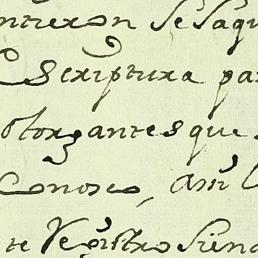 ntieron Se Saqu
Escriptura pa
otorgantes que
Conosco, am
te Registro Siend